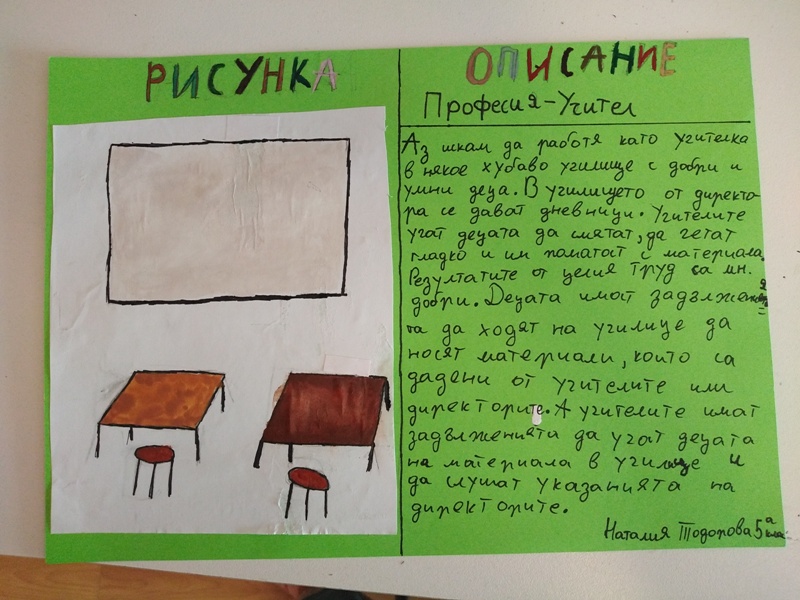 РИСУНКА
ОПИСАНИЕ
Професия-Учител
Аз искам да работя като учителка
в някое хубаво училище с добри и
умни деца. В училището от директо-
ра се дават дневници. Учителите
учат децата да смятат, да четат
гладко и им помагат с материала.
Резултатите от целия труд са мн.
добри. Децата имат задължения
та да ходят на училище да
носят материали, които са
дадени от учителите или
директорите. А учителите имат
задълженията да учат децата
на материала в училище и
да слушат указанията на
директорите.
Наталия Тодорова 5а клас